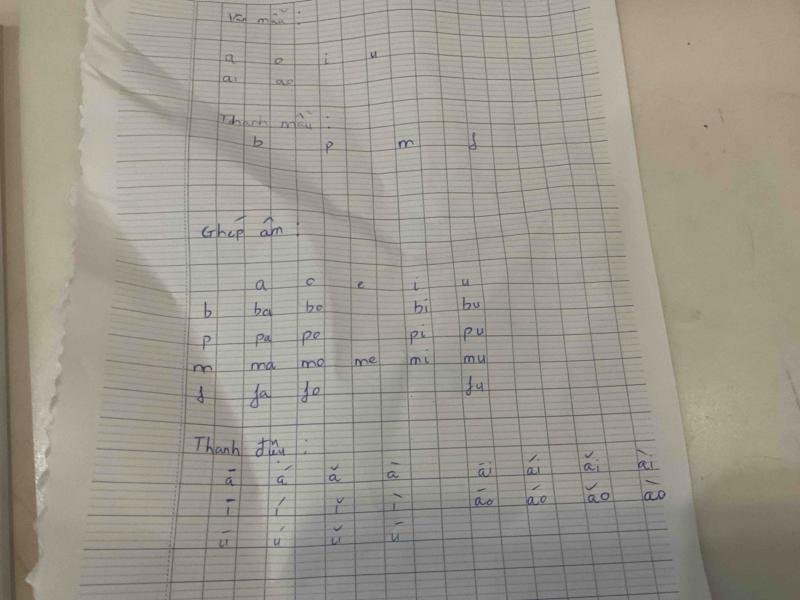 Vận mẫu :
a o i u
ai ao
Thanh mẫu :
b p m f
Ghép âm :
a o e i u
b ba bo bi bu
p pa po pi pu
m ma mo me mi mu
f fa fo fu
Thanh điệu :
ā á ǎ à āi ái ǎi ài
ī í ǐ ì āo áo ǎo ào
ū ú ǔ ù